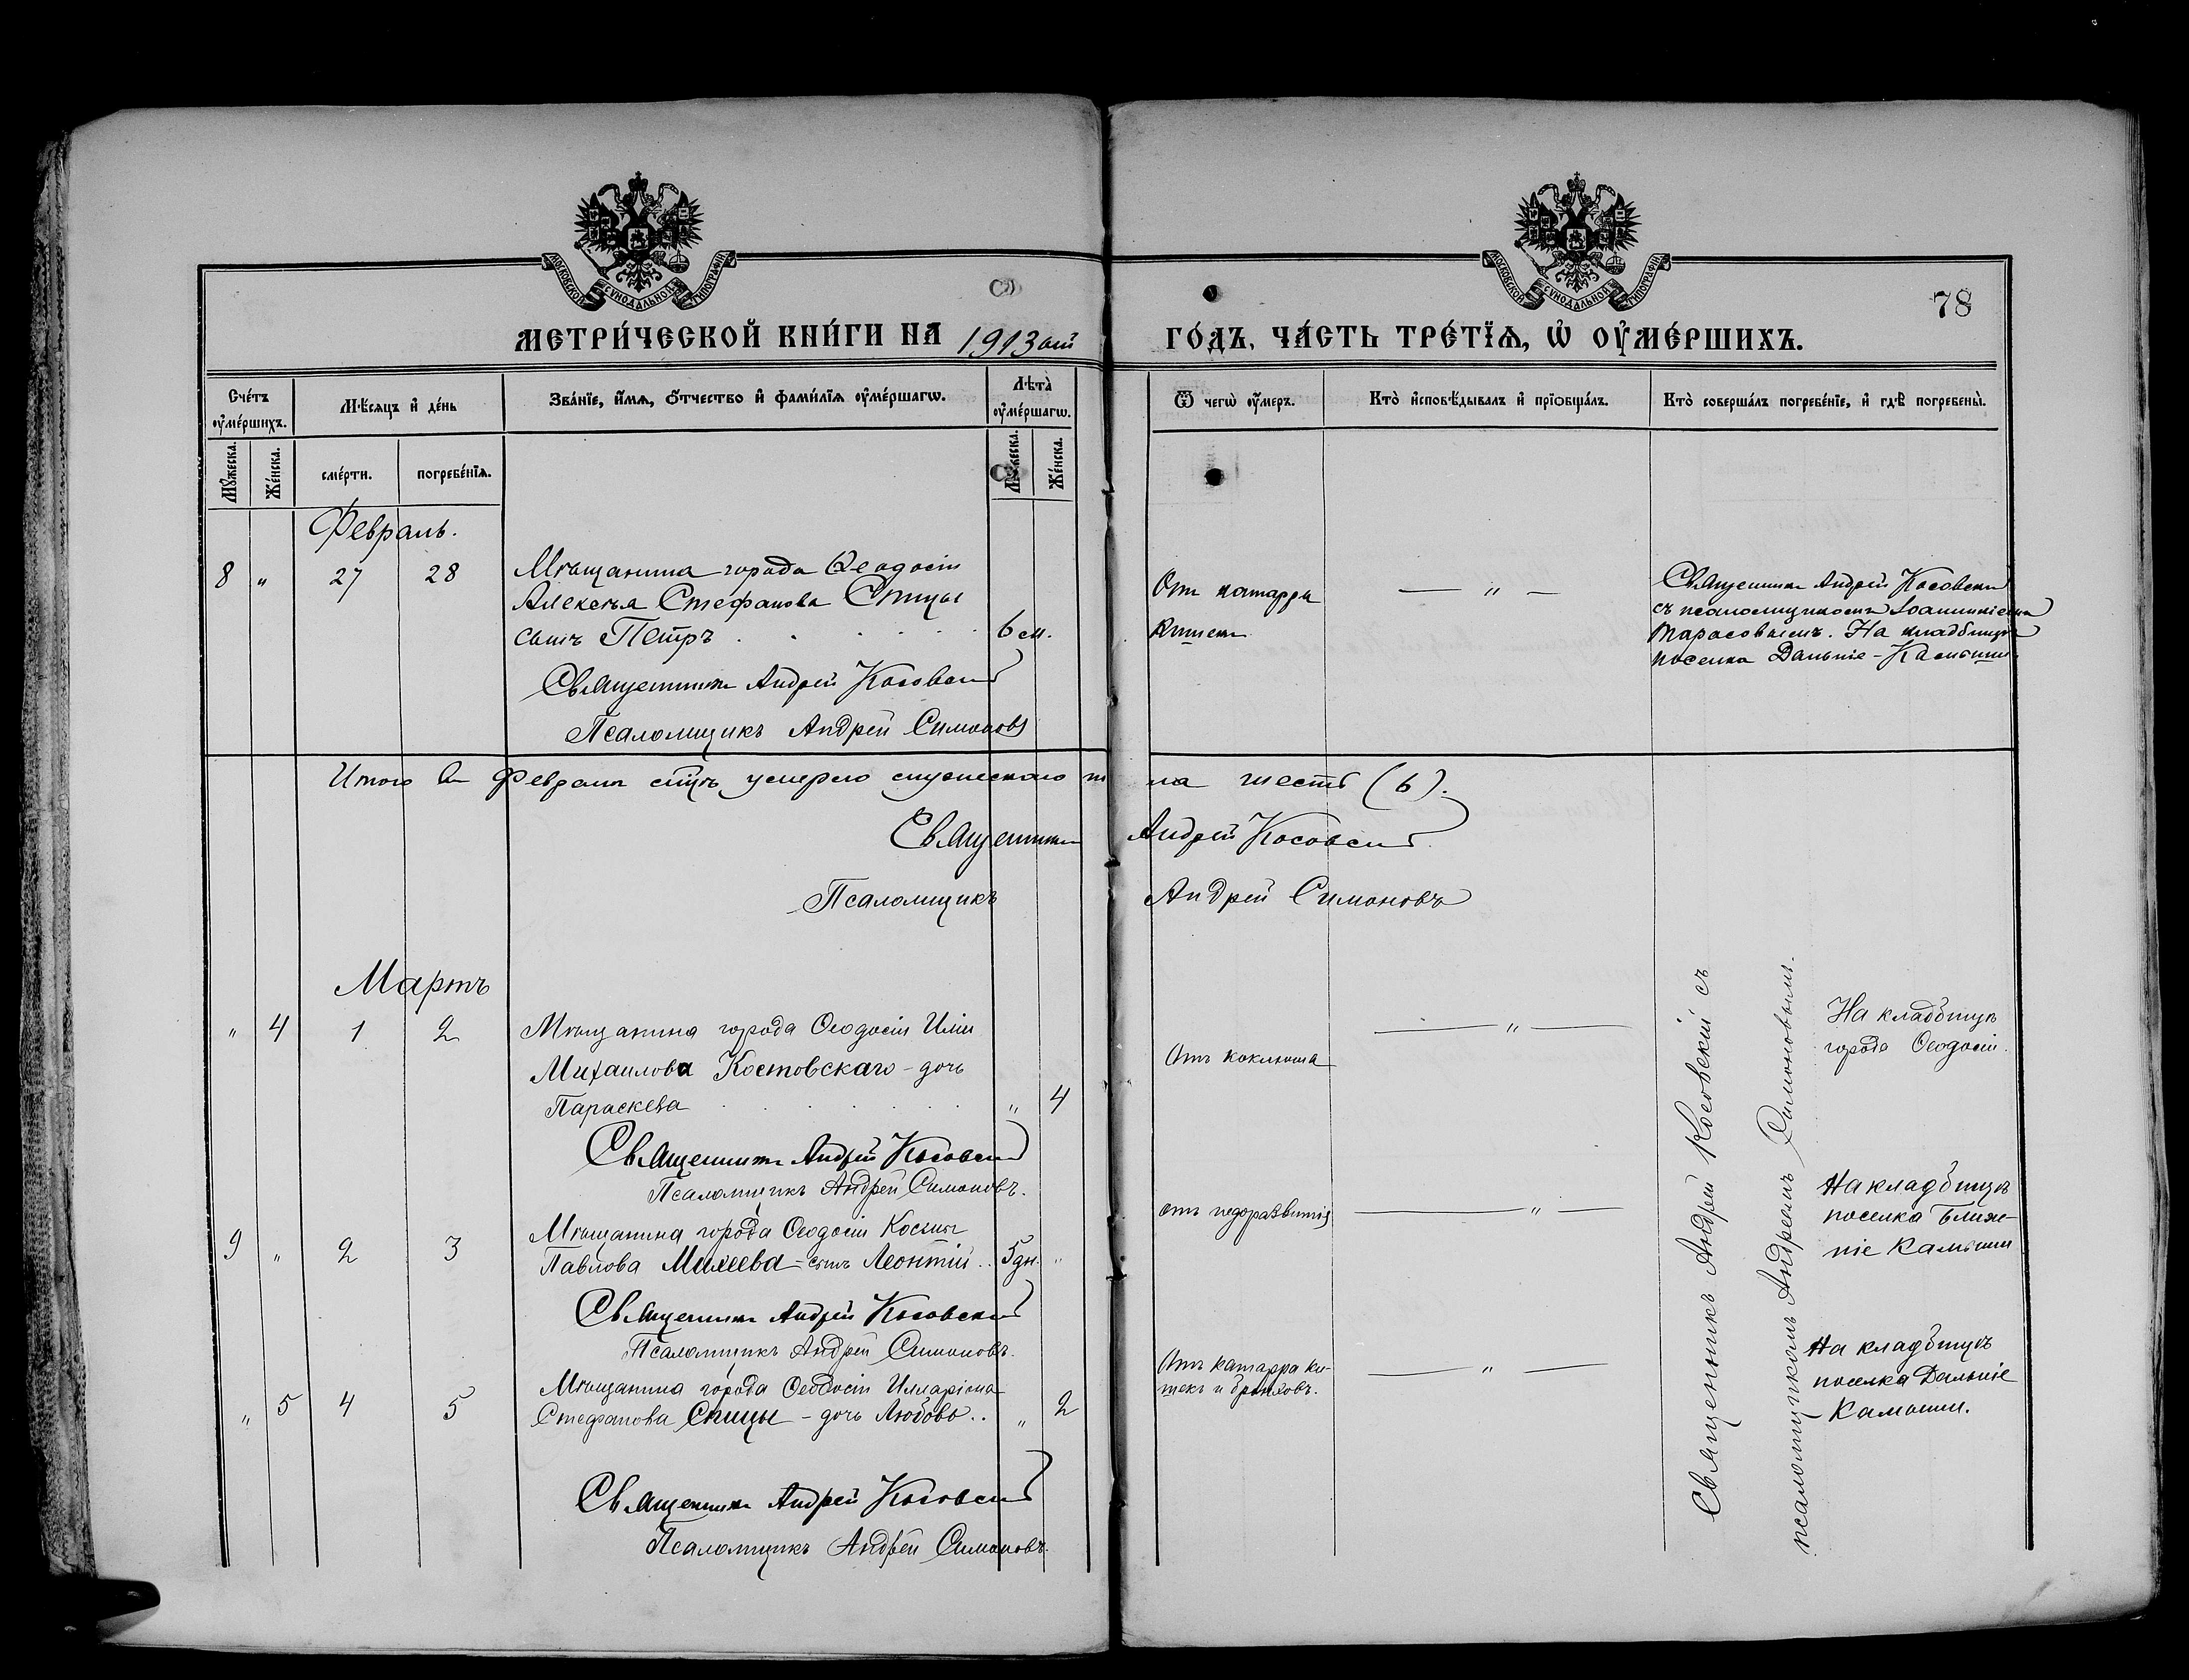 МОСКОВСКОЙ СУНОДАЛЬНОЙ ТИПОГРАФІИ
МЕТРИ́ЧЕСКОЙ КНИ́ГИ НА 1913 ый
Сче́тъ ᲂу҆ме́ршихъ.
Мѣ́сяцъ и҆ де́нь
Зва́нїе, и҆́мѧ, ѻ҆́тчество и҆ фами́лїѧ ᲂу҆ме́ршагѡ.
Лѣ́та ᲂу҆ме́ршагѡ.
Мꙋ́жеска.
Же́нска.
сме́рти.
погребе́нїѧ.
Мꙋ́жеска.
Же́нска.
Февраль.
8 " 27 28 Мѣщанина города Ѳеодосіи
Алексѣя Стефанова Спицы
сынъ Петръ . . . . . 6 м.
Священникъ Андрей Косовскій
Псаломщикъ Андрей Симоновъ
Итого въ Февралѣ умерло мужескаго
Священникъ
Псаломщикъ
Мартъ
" 4 1 2 Мѣщанина города Ѳеодосіи Иліи
Михаилова Костовскаго - дочь
Параскева . . . . . . " 4
Священникъ Андрей Косовскій
Псаломщикъ Андрей Симоновъ.
9 " 2 3 Мѣщанина города Ѳеодосіи Космы
Павлова Михеева - сынъ Леонтій .. 5 дн. "
Священникъ Андрей Косовскій
Псаломщикъ Андрей Симоновъ.
" 5 4 5 Мѣщанина города Ѳеодосіи Илларіона
Стефанова Спицы - дочь Любовь .. " 2
Священникъ Андрей Косовскій
Псаломщикъ Андрей Симоновъ.
МОСКОВСКОЙ СУНОДАЛЬНОЙ ТИПОГРАФІИ
78
ГО́ДЪ, ЧА́СТЬ ТРЕ́ТЇѦ, Ѡ҆ ОУ҆МЕ́РШИХЪ.
Ѿ чегѡ̀ ᲂу҆́меръ.
Кто̀ и҆сповѣ́дывалъ и҆ прїѻбща́лъ.
Кто̀ соверша́лъ погребе́нїе, и҆ гдѣ̀ погребены̀.
От катарра
кишекъ
— " —
Священникъ Андрей Косовскій
съ псаломщикомъ Іоанникіемъ
Тарасовымъ. На кладбищѣ
поселка Дальніе - Камыши.
ла шесть (6).
Андрей Косовскій
Андрей Симоновъ
Отъ коклюша
— " —
На кладбищѣ
города Ѳеодосіи.
отъ недоразвитія
— " —
На кладбищѣ
поселка Ближ-
ніе Камыши
Отъ катарра ки-
шекъ и бронховъ.
— " —
На кладбищѣ
поселка Дальніе
Камыши.
Священникъ Андрей Косовскій съ
псаломщикомъ Андреемъ Симоновымъ.